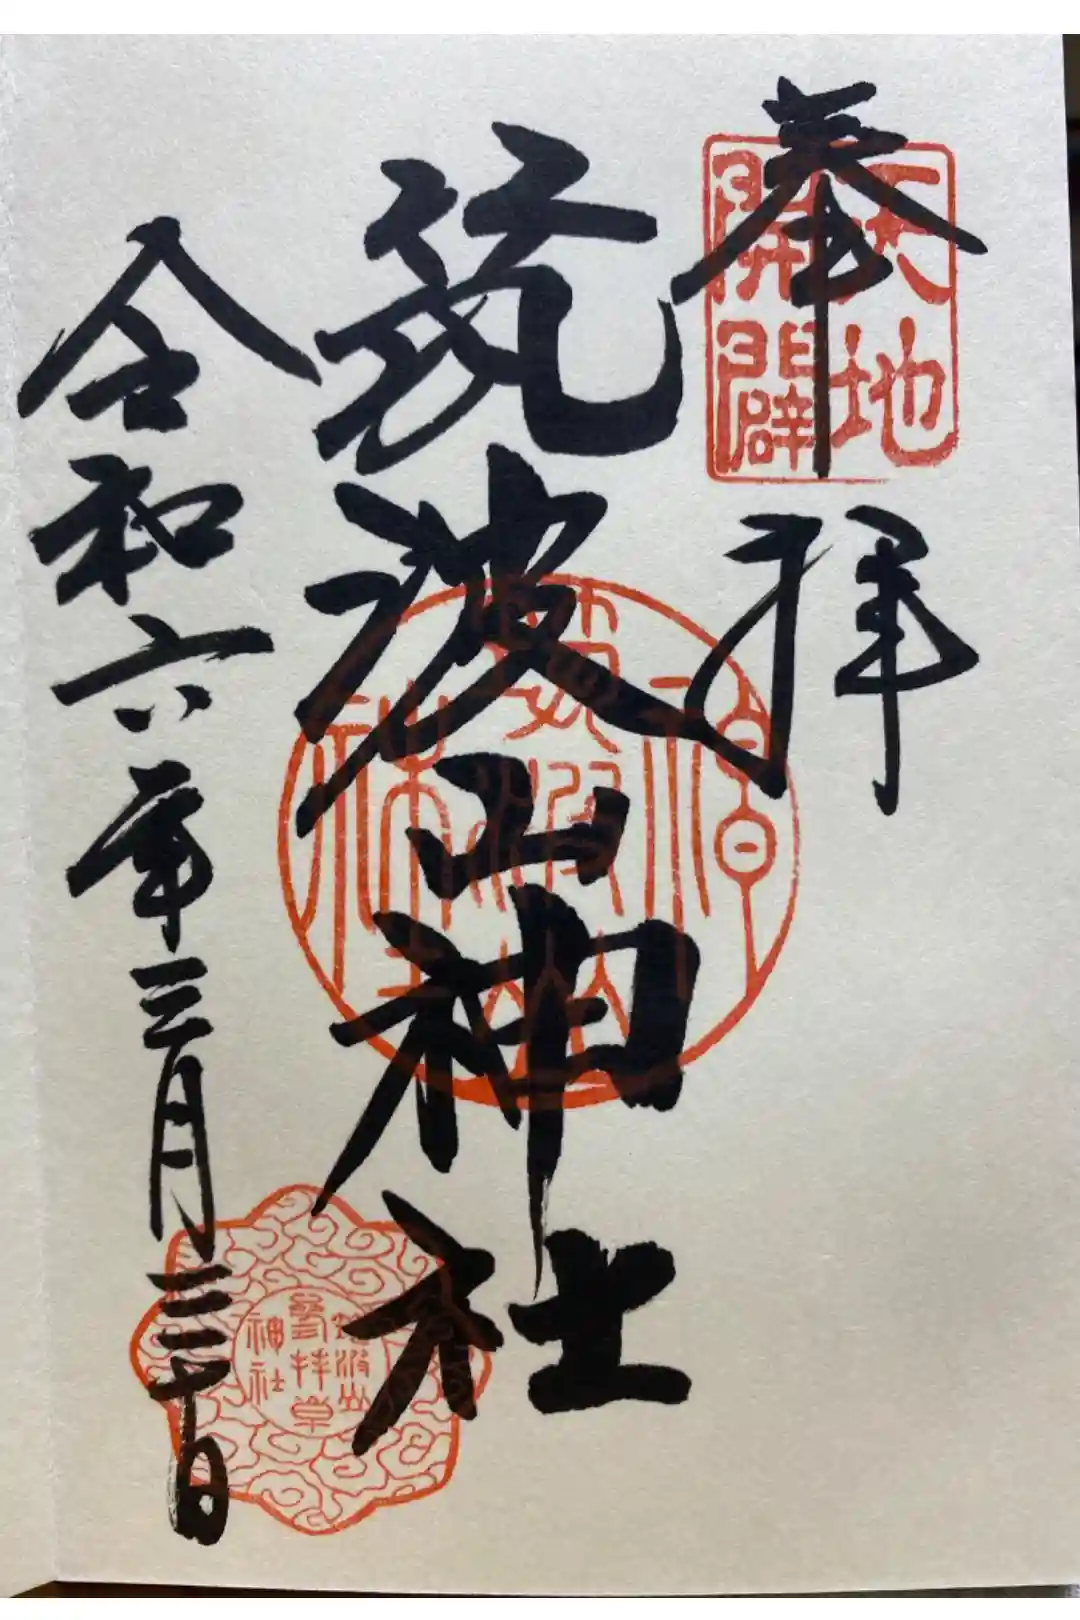 奉拝
天地
開闢
筑波山神社
筑波山
参拝章
神社
令和六年三月三十日